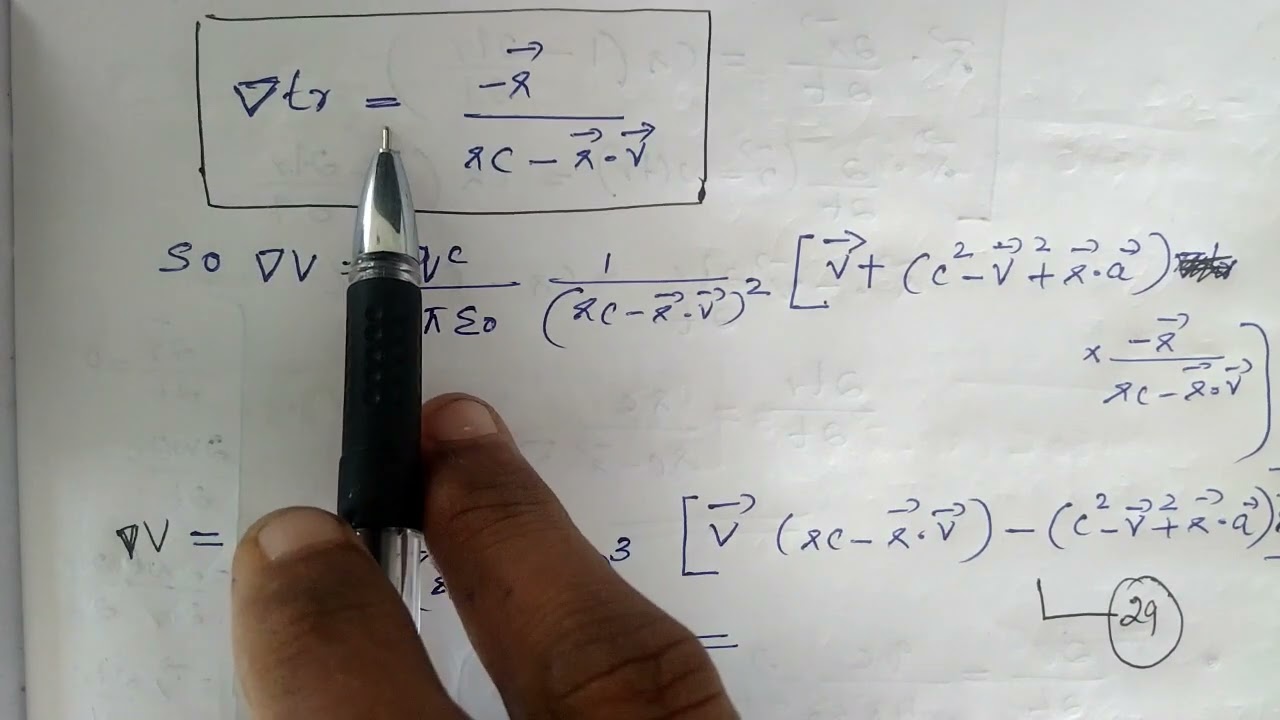 ∇tr = −r⃗ / (rc − r⃗·v⃗)
So ∇V = qc / πε₀ 1 / (rc − r⃗·v⃗)² [v⃗ + (c² − v⃗² + r⃗·a⃗)
× −r⃗ / (rc − r⃗·v⃗)]
∇V = 3 [v⃗ (rc − r⃗·v⃗) − (c² − v⃗² + r⃗·a⃗)
29